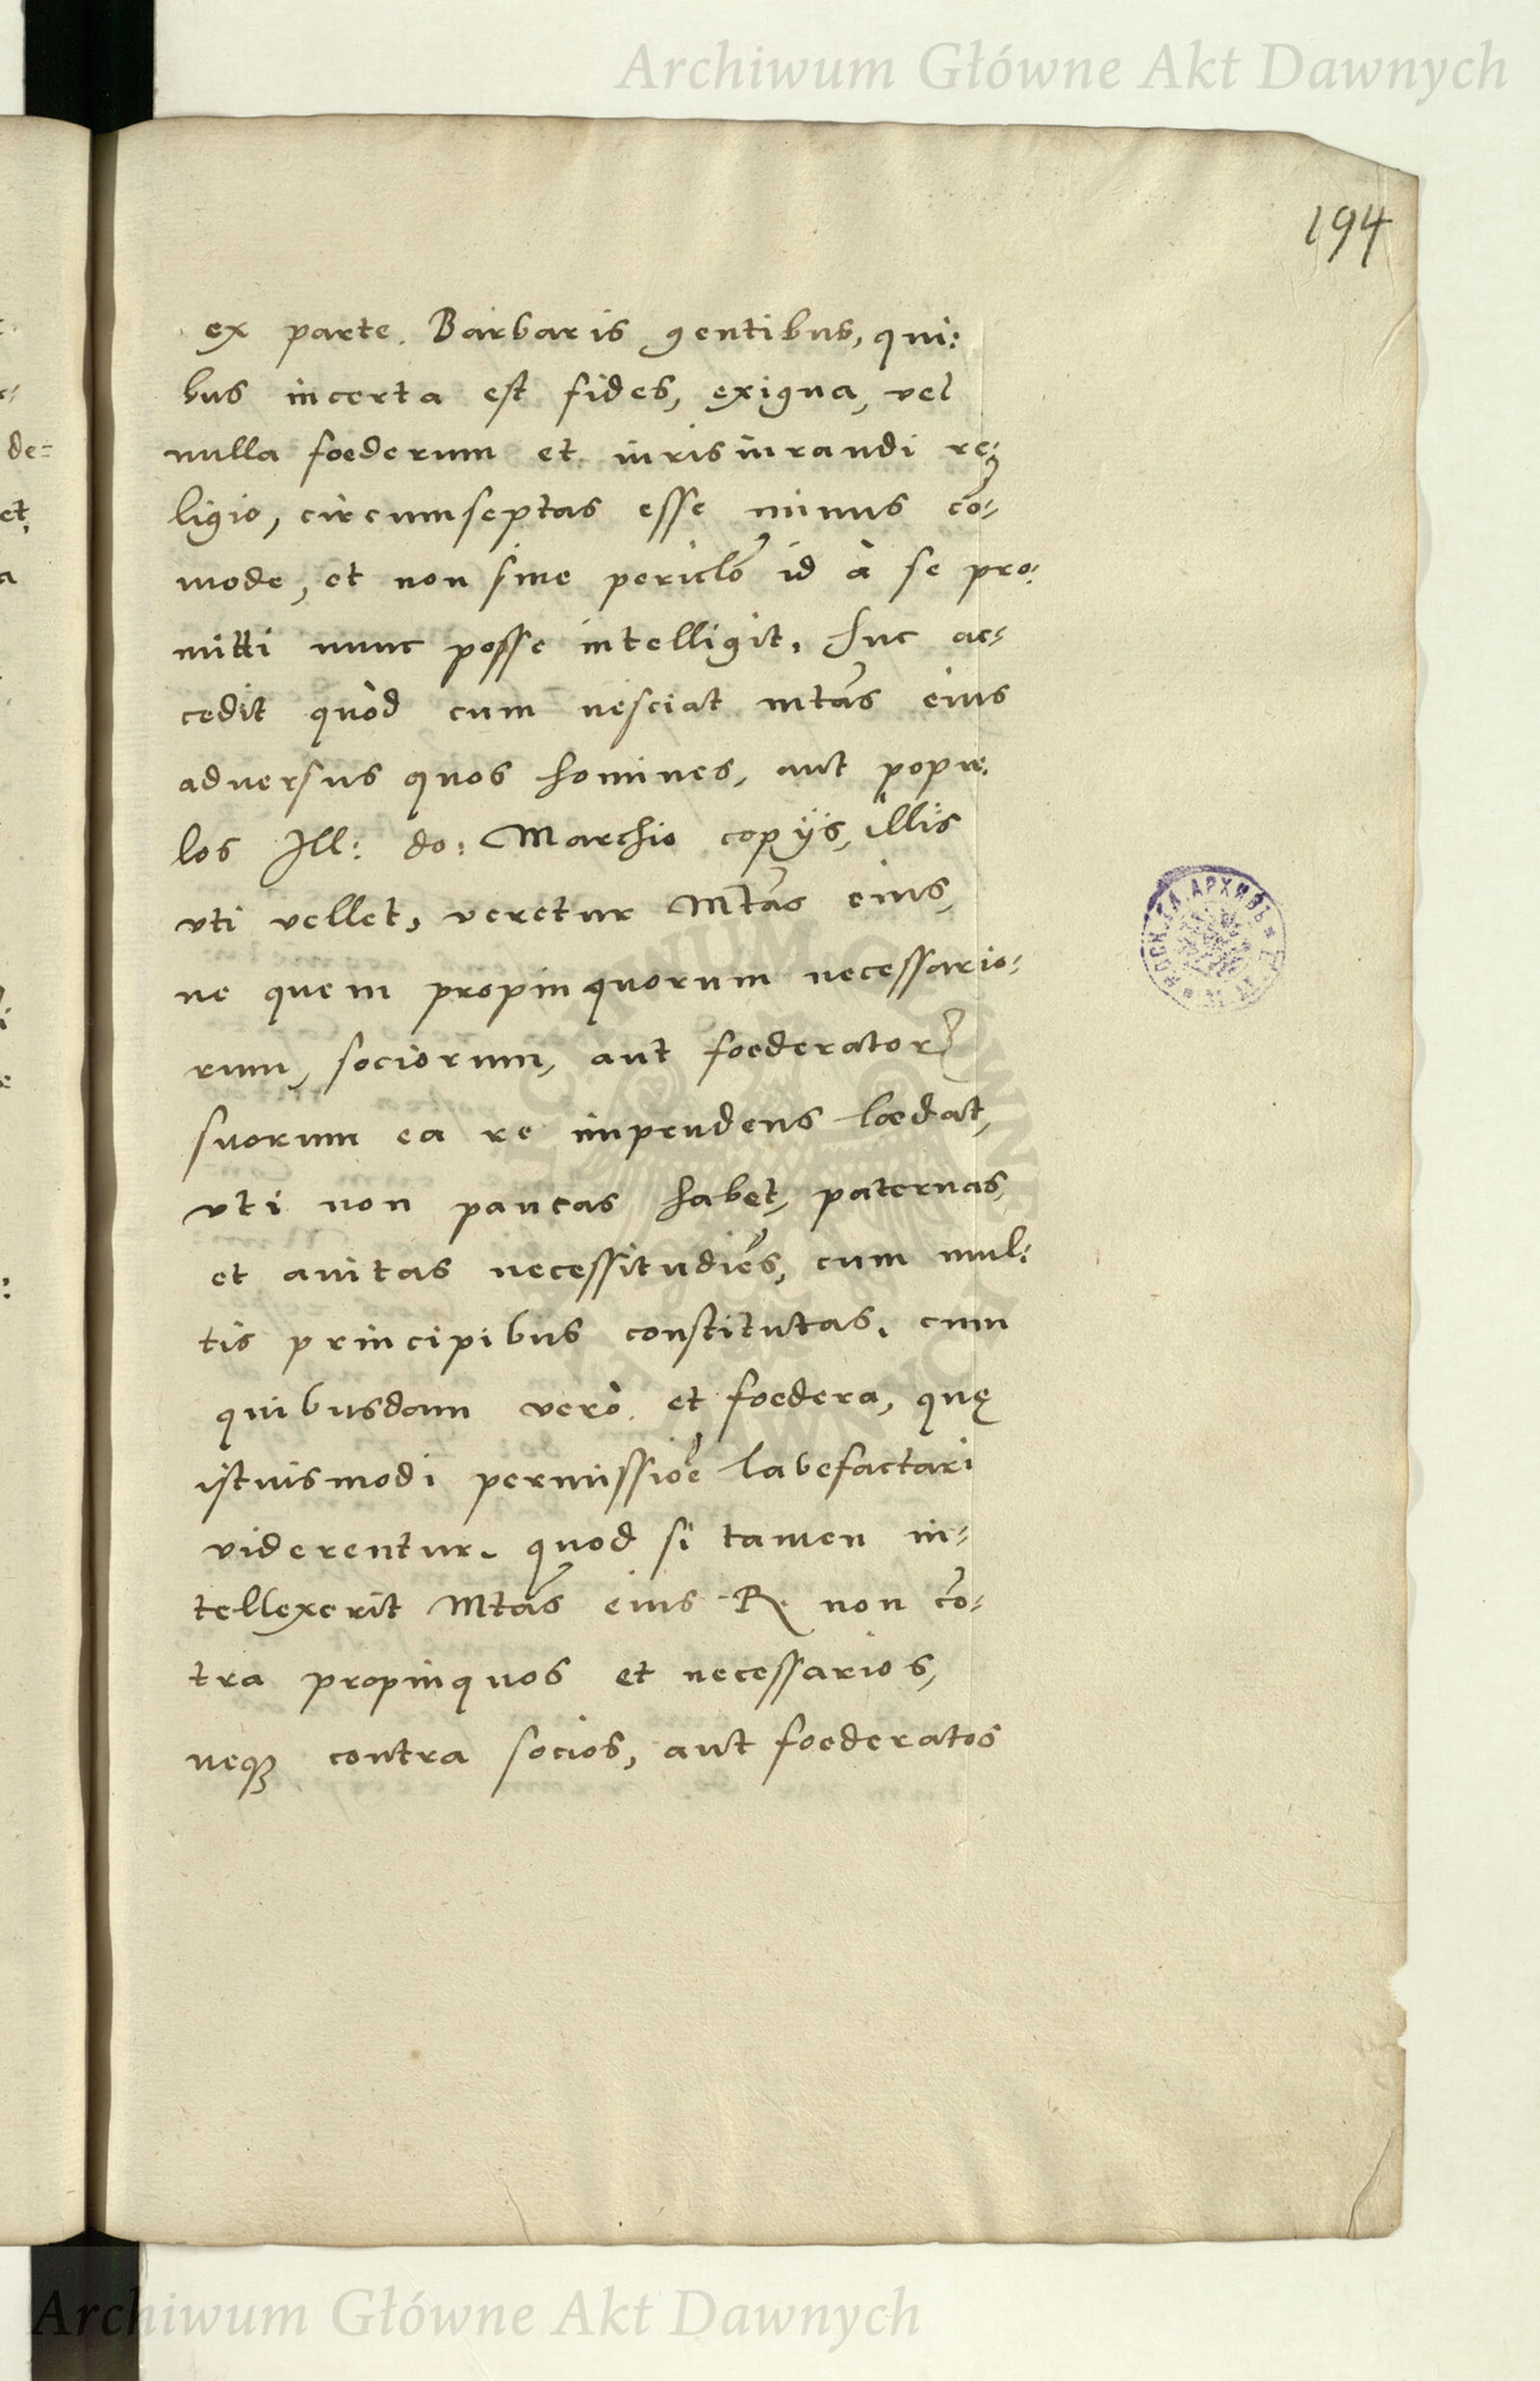 Archiwum Główne Akt Dawnych
194
ex parte. Barbaris gentibus, qui:
bus incerta est fides, exigua, vel
nulla foederum et iurisiurandi re:
ligio, circumseptas esse minus cõ-
mode, et non sine pericłõ id à se pro:
mitti nunc posse intelligit. Huc ac-
cedit quòd cum nesciat mtãs eius
aduersus quos homines, aut popu:
los Ill: do: Marchio copijs, illis
vti vellet, veretur Mtãs eius,
ne quem propinquorum necessario:
rum, sociorum, aut foederatorũ
suorum ea re imprudens lædat,
vti non paucas habet, paternas,
et auitas necessitudiẽs, cum mul:
tis principibus constitutas. cum
quibusdam verò et foedera, quę
istiusmodi permissiõe labefactari
viderentur. quod si tamen in-
tellexerit Mtãs eius R. non cõ-
tra propinquos et necessarios,
neqȝ contra socios, aut foederatos
de=
et,
Archiwum Główne Akt Dawnych